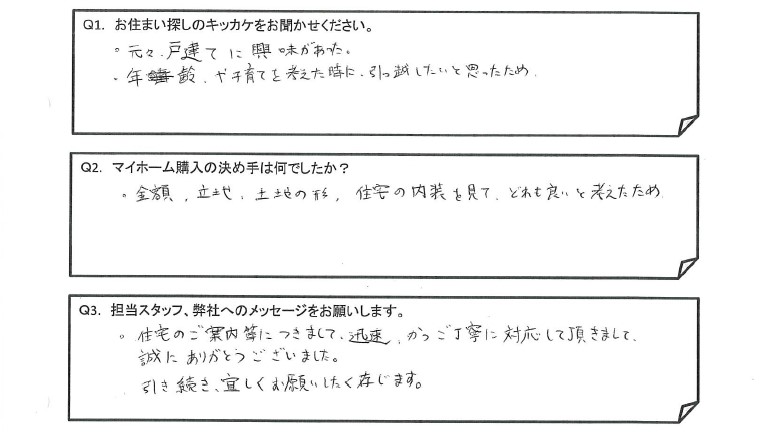 Q1. お住まい探しのキッカケをお聞かせください。
。元々、戸建てに興味があった。
・年齢、や子育てを考えた時に、引っ越ししたいと思ったため.
Q2. マイホーム購入の決め手は何でしたか？
。金額、立地、土地の形、住宅の内装を見て、どれも良いと考えたため
Q3. 担当スタッフ、弊社へのメッセージをお願いします。
。住宅のご案内等につきまして、迅速、かつご丁寧に対応して頂きまして、
誠にありがとうございました。
引き続き、宜しくお願いしたく存じます。